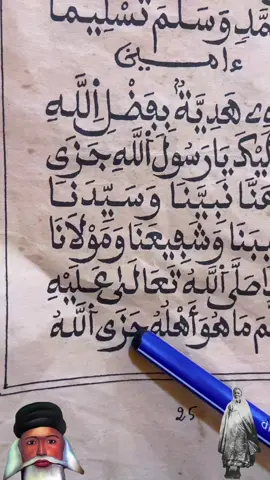 مَّدِ وَسَلَّمَ تَسْلِيمًا
ءامين
هَدِيَّةٌ بِفَضْلِ اللَّهِ
لَيْكَ يَا رَسُولَ اللَّهِ جَزَى
عَنَّا نَبِيَّنَا وَسَيِّدَنَا
يبَنَا وَشَفِيعَنَا وَمَوْلَانَا
ا صَلَّى اللَّهُ تَعَالَى عَلَيْهِ
م مَا هُوَ أَهْلُهُ جَزَى اللَّهُ
25